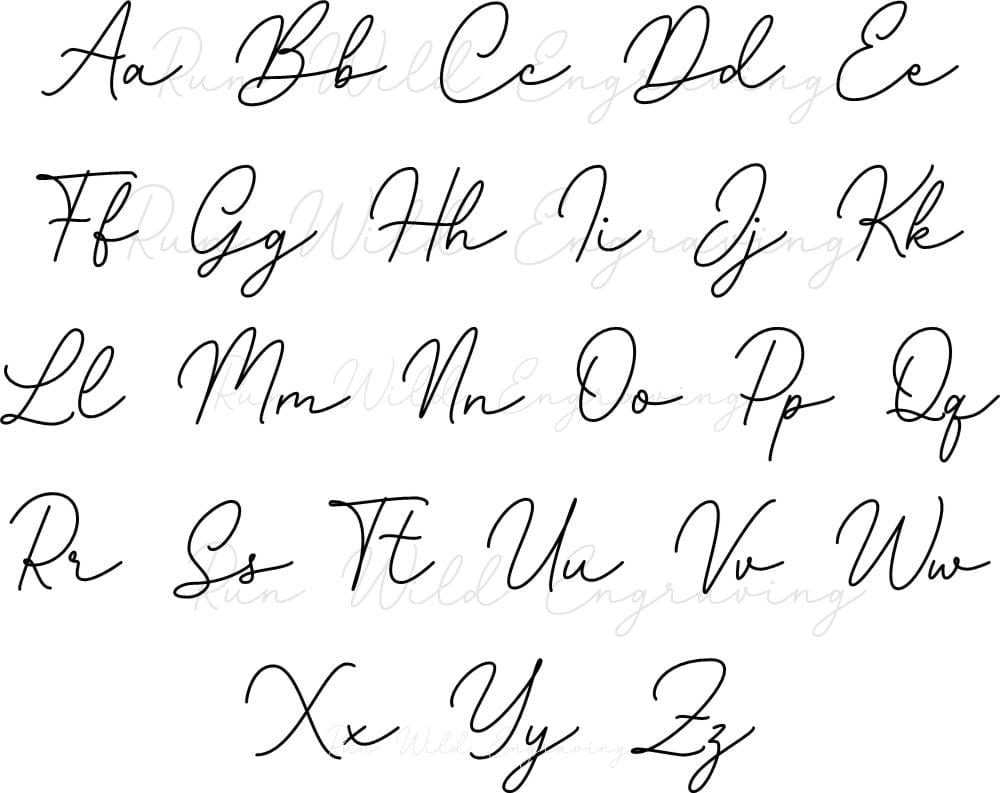 Aa Bb Cc Dd Ee
Run Wild Engraving
Ff Gg Hh Ii Jj Kk
Run Wild Engraving
Ll Mm Nn Oo Pp Qq
Run Wild Engraving
Rr Ss Tt Uu Vv Ww
Run Wild Engraving
Xx Yy Zz
Run Wild Engraving